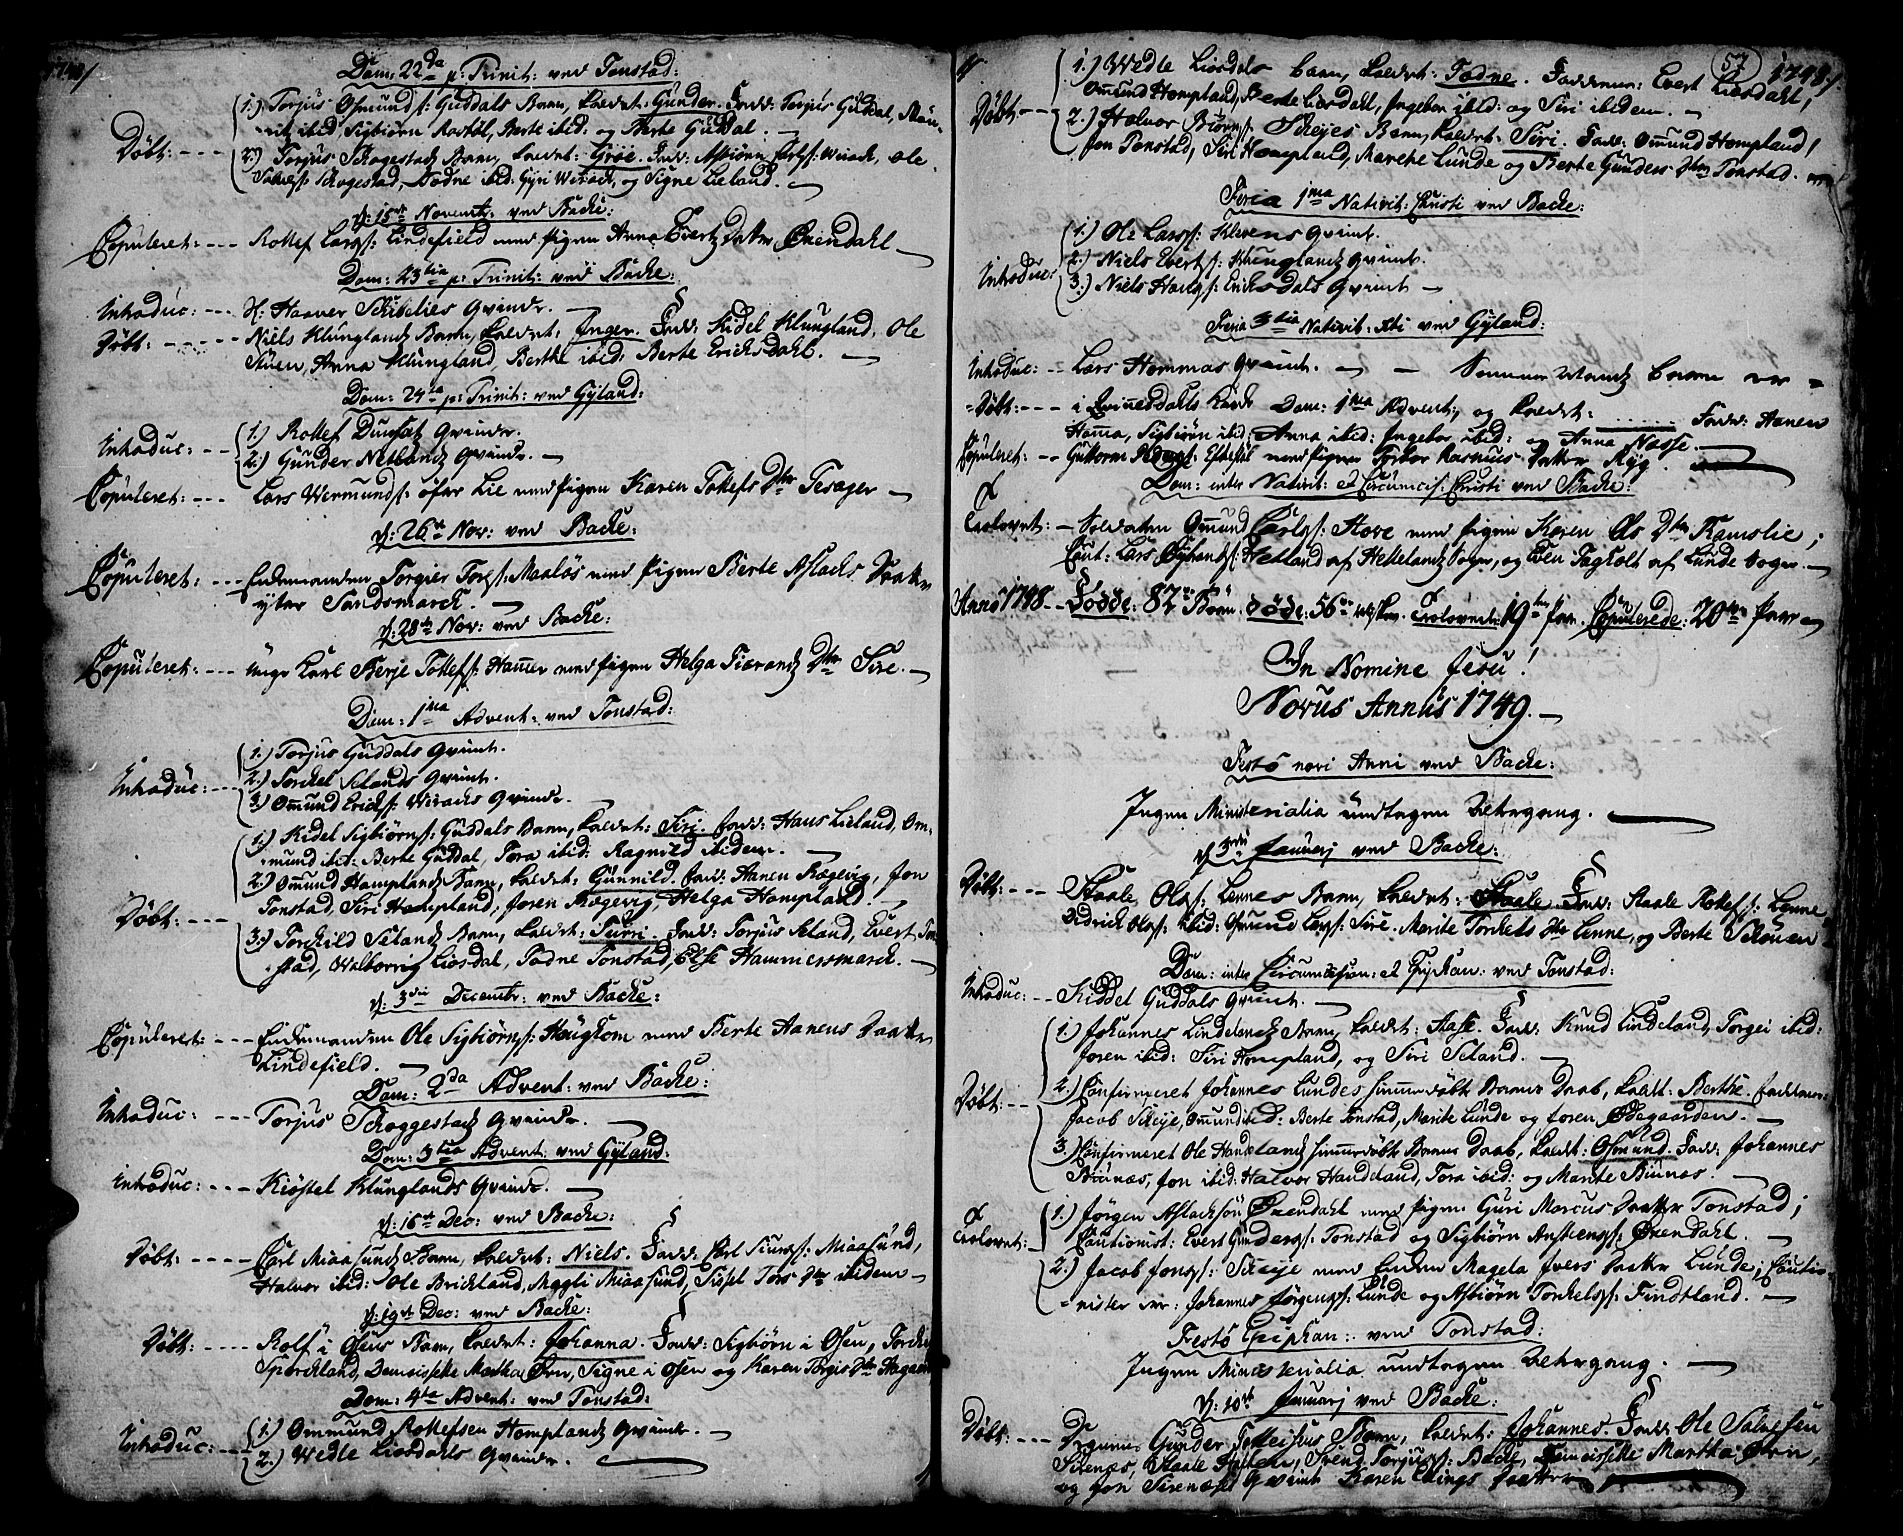 1748/
Dom: 22da p: Trinit: ved Tonstad:
1.) Torjus Osmunds: Guddals Barn, kaldet: Gunder. Fadd: Torjus Guddal,
ibid: Sigbiørn Rostøl, Berte ibid: og Berte Guddal.
Døbt: 2.) Torjus Skogestads Barn, kaldet: Grøe. Fadd: Asbiørn Carls: Wirack, Ole
Skogestad, Todne ibid: Gyri Wirack, og Signe Lieland.
d: 15de Novembr: ved Backe:
Copuleret: Rollef Lars: Lindefield med Pigen Anna Evertz Datter Øxendahl
Dom: 23tia p: Trinit: ved Backe:
Introduc: H: Haaver Schibelies Qvinde.
Døbt: Niels Klunglands Barn, kaldet: Inger. Fadd: Kidel Klungland, Ole
Stuen, Anna Klungland, Berthe ibid: Berte Ericksdahl.
Dom: 24ta p: Trinit: ved Gyland:
Introduc: 1.) Rollef Dunsæt Qvinde.
2.) Gunder Netlandz Qvinde.
Copuleret: Lars Wermunds: øfre Lie med Pigen Karen Tollefs Dtr Fesager
d: 26de Nov: ved Backe:
Copuleret: Enkemanden Torgier Tors: Maaløs med Pigen Berte Aslachs Daatter
ytre Sandsmarck.
d: 28de Nov: ved Backe:
Copuleret: unge Karl Berje Tollefs: Hammer med Pigen Helga Siurandz Dtr Sire.
Dom: 1ma Advent: ved Tonstad:
Introduc: 1.) Torjus Guddals Qvinde.
2.) Torckel Selands Qvinde.
3.) Ommund Ericks: Wiracks Qvinde.
1.) Kidel Sigbiørns: Guddals Barn, kaldet: Siri. Fadd: Hans Lieland, Om-
mund ibid: Berte Guddal, Tora ibid: Ragnild ibidem.
2.) Ommund Homplandz Barn, kaldet: Gunnild. Fadd: Hanen Rægevig, Jon
Døbt: Tonstad, Siri Hompland, Joren Rægevig, Helga Hompland.
3.) Torckild Selandz Barn, kaldet: Turri. Fadd: Torjus Seland, Evert Ton-
stad, Walborrig Liosdal, Todne Tonstad, Else Hammersmarck.
d: 3die Decembr: ved Backe:
Copuleret: Enkemanden Ole Sigbiørns: Haughom med Berte Hanens Daatter
Lindefield.
Dom: 2da Advent: ved Backe:
Introduc: Torjus Skoggestadz Qvinde.
Dom: 3tia Advent: ved Gyland:
Introduc: Kiøstel Klunglands Qvinde.
d: 16de Dec: ved Backe:
Døbt: Carl Miaasundz Barn, kaldet: Niels. Fadd: Carl Siurs: Miaasund,
Halvor ibid: Ole Brickland, Meggli Miaasund, Sissel Tors Dtr ibidem
d: 19de Dec: ved Backe:
Døbt: Rolf i Osens Barn, kaldet: Johanna. Fadd: Sigbiørn i Osen, Torckel
Sporckland, Demoiselle Martha Ørn, Signe i Osen og Karen Torgis Dtr
Dom: 4ta Advent: ved Tonstad:
Introduc: 1.) Ommund Rollefsen Homplandz Qvinde.
2.) Wedle Liosdahls Qvinde.
57
1748/
1.) Wedle Liosdals Barn, kaldet: Todne. Fadderne: Evert Liosdahl,
Døbt: Ommund Hompland, Berte Liosdahl, Ingebor ibid: og Siri ibidem.
2.) Halvor Biørns: Schejes Barn, kaldet: Siri. Fadd: Ommund Hompland,
Jon Tonstad, Siri Hompland, Marethe Lunde og Berte Gunders Dtr Tonstad.
Feria 1ma Nativit: Christi ved Backe:
1.) Ole Lars: Klevens Qvinde.
Introduc: 2.) Niels Everts: Klunglandz Qvinde.
3.) Niels Ericksdals Qvinde
Feria 3tia Nativit: Xti ved Gyland:
Introduc: Lars Hommas Qvinde. Barn
Døbt: i Qvinesdals Kirck Dom: 1ma Advent:, og kaldet: ...... Fadd: Hanen
Homma, Sigbiørn ibid: Anna ibid: Ingebor ibid: og Anna Nasse.
Copuleret: Guttorm med Pigen Datter Ryg.
Dom: inter Nativit: et Circumcis: Christi ved Backe:
Trolovet: Soldaten Omund Carls: Stove med Pigen Karen Ols Dtr Ramslie;
Caut: Lars Hetland af Hettelandz Sogn, og Even Fagholt af Lunde Sogn.
Anno 1748 Fødde: 82 Børn. døde: 56 Trolovede: 19 Par. Copulerede: 20 Par
In Nomine Jesu!
Novus Annus 1749.
Festo novi Anni ved Backe:
Ingen Ministerialia undtagen Bøtægang.
d: 3die Januarj ved Backe:
Døbt: Staale Ols: Lennes Barn, kaldet: Staale. Fadd: Staale Rollefs: Lenne,
Didrick Ols: ibid: Osmund Lars: Sire. Marite Torckels Dtr Lenne, og Berte
Dom: inter Circumcision: et Epiphan: ved Tonstad:
Introduc: Kiddel Guddals Qvinde.
1.) Johannes Lindelandz Barn, kaldet: Aase. Fadd: Knud Lindeland, Torgei ibid:
Joren ibid: Siri Hompland, og Siri Seland.
Døbt: 2.) Confirmeret Johannes Lundes hiemmedøbte Barns Daab, kaldt: Berthe. Faddere:
Jacob Scheje, Omund ibid: Berte Tonstad, Marite Lunde og Joren Ødegaarden.
3.) Confirmeret Ole Handelandz hiemmedøbte Barns Daab, kaldt: Osmund. Fadd: Johannes
Biunæs, Jon ibid: Halvor Handeland, Tora ibid: og Marite Biunæs.
1.) Jørgen Aslachsøn Øxendahl med Pigen Guri Marcus Daatter Tonstad;
Trolovet: Cautionist: Evert Gunders: Tonstad og Sigbiørn Anstens: Øxendahl.
2.) Jacob Jons: Scheje med Enken Magela Ivers Daatter Lunde; Cautio-
nister er: Johannes Jørgens: Lunde og Asbiørn Torckels: Findtland.
Festo Epiphan: ved Tonstad:
Ingen Ministerialia undtagen Bøtægang.
d: 10de Januarj ved Backe:
Døbt: Gunder Barn, kaldet: Johannes. Fadd: Ole Salvesen
Sirenæs, Staale Svend Torjus: Backe, Demoiselle Martha Ørn,
og Jon Sirenæses Qvinde Karen Ellings Daatter